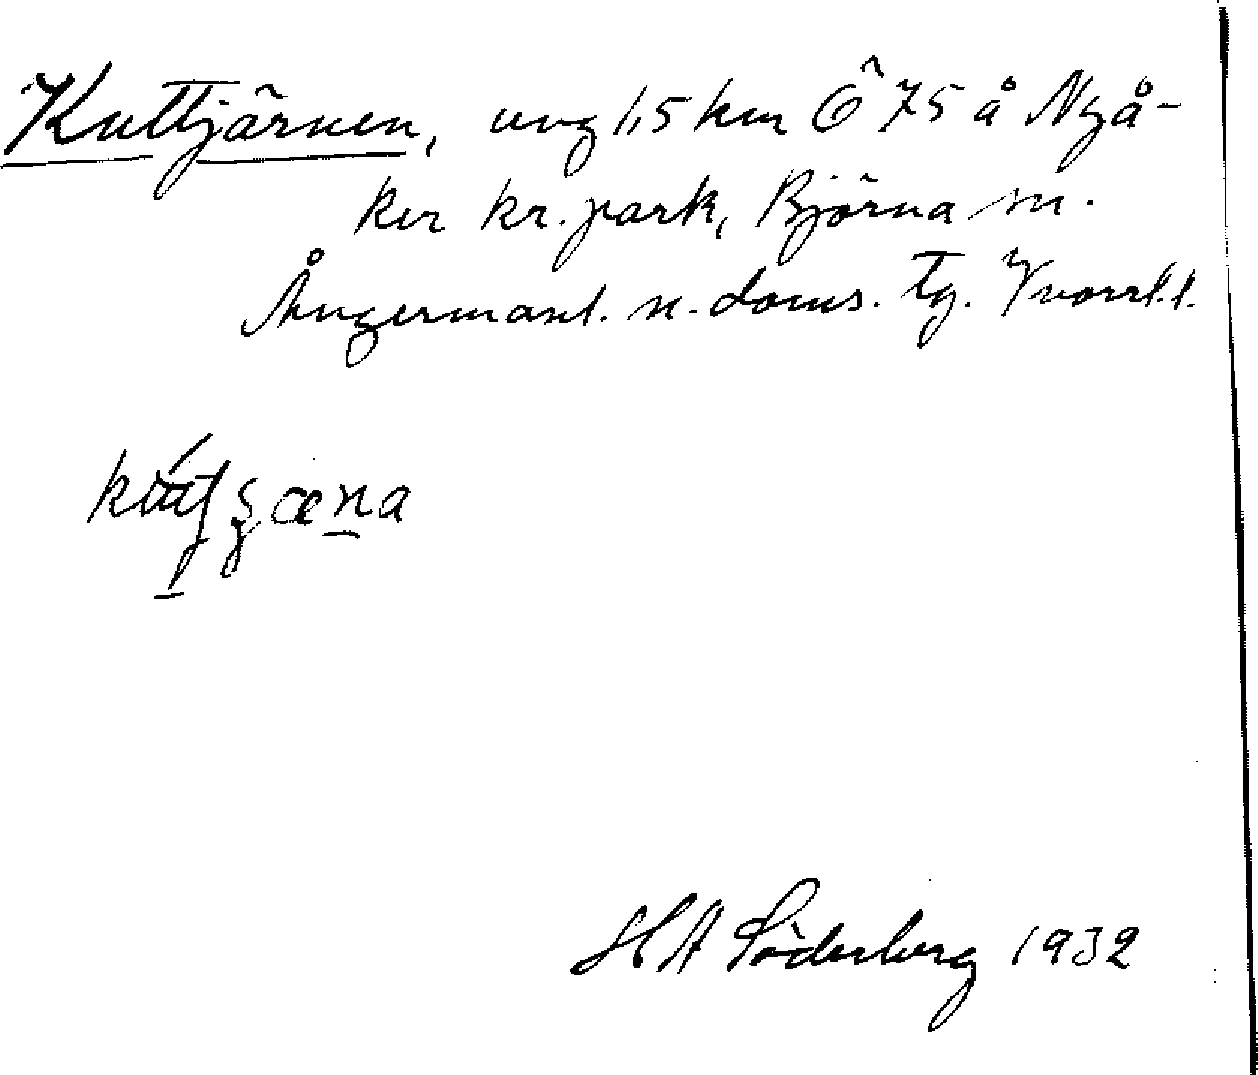 Kuttjärnen, ung 1,5 km Ö 75 å Nyå-
ker kr. park, Björna sn.
Ångermanl. n. doms. tg. Y norrl. l.
H A Söderberg 1932